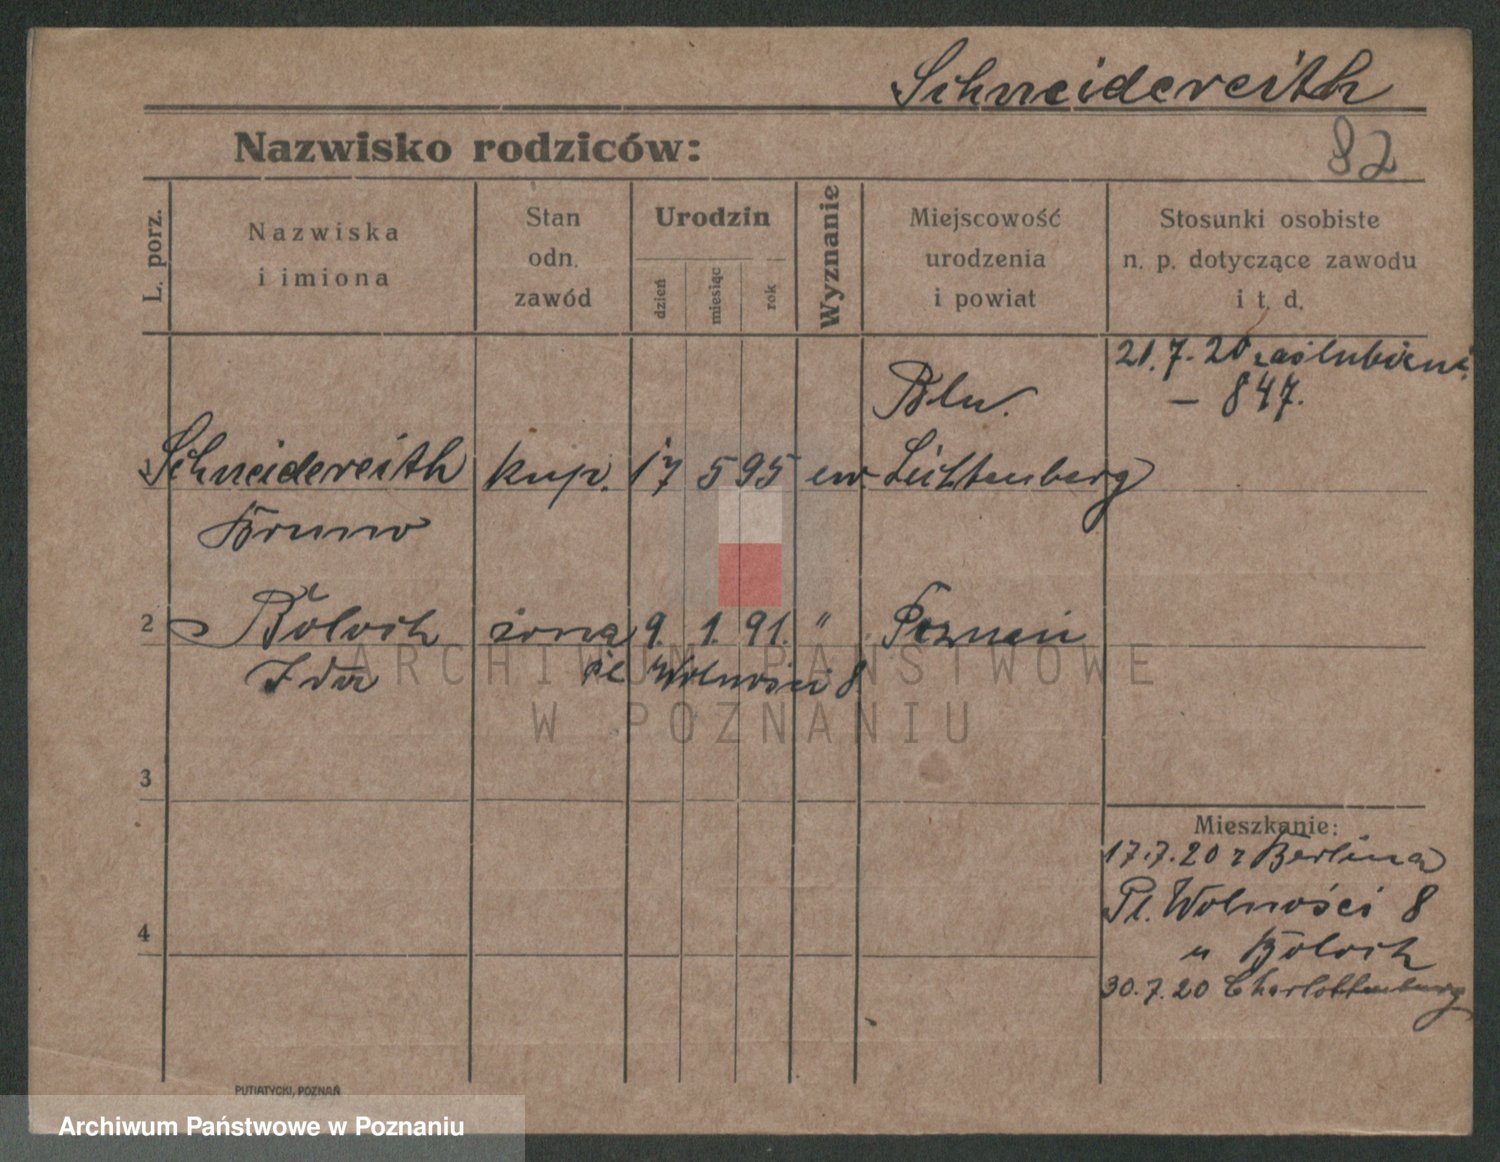 Schneidereith
Nazwisko rodziców:
82
L. porz.
Nazwiska
i imiona
Stan
odn.
zawód
Urodzin
dzień
miesiąc
rok
Wyznanie
Miejscowość
urodzenia
i powiat
Stosunki osobiste
n. p. dotyczące zawodu
i t. d.
21.7.20 zaślubieni
– 847.
Bln.
1 Schneidereith kup. 17 5 95 ew. Lichtenberg
Bruno
2 Boloch żona 9. 1. 91. " Poznań
Ida pl Wolności 8
ARCHIWUM PAŃSTWOWE
W POZNANIU
3
Mieszkanie:
17.7.20 z Berlina
Pl. Wolności 8
4
u Boloch
30.7.20 Charlottenburg
PUTIATYCKI, POZNAŃ
Archiwum Państwowe w Poznaniu